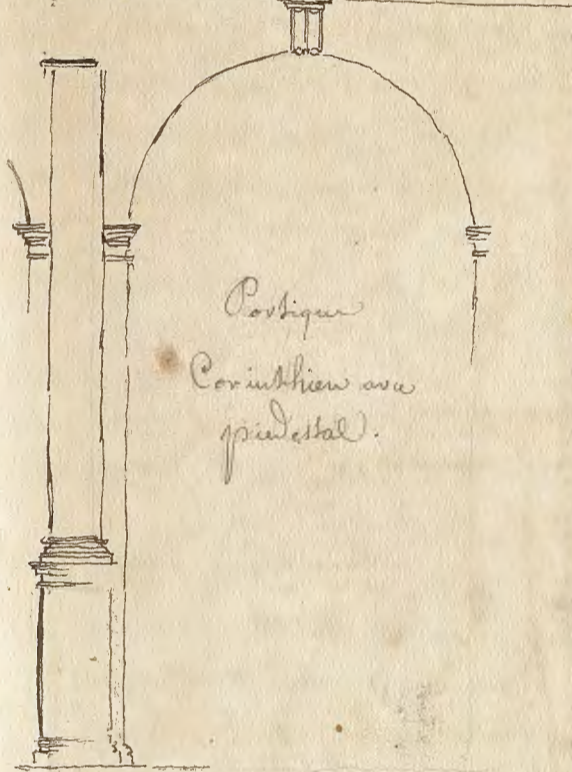 Portique
Corinthien avec
piedestal.